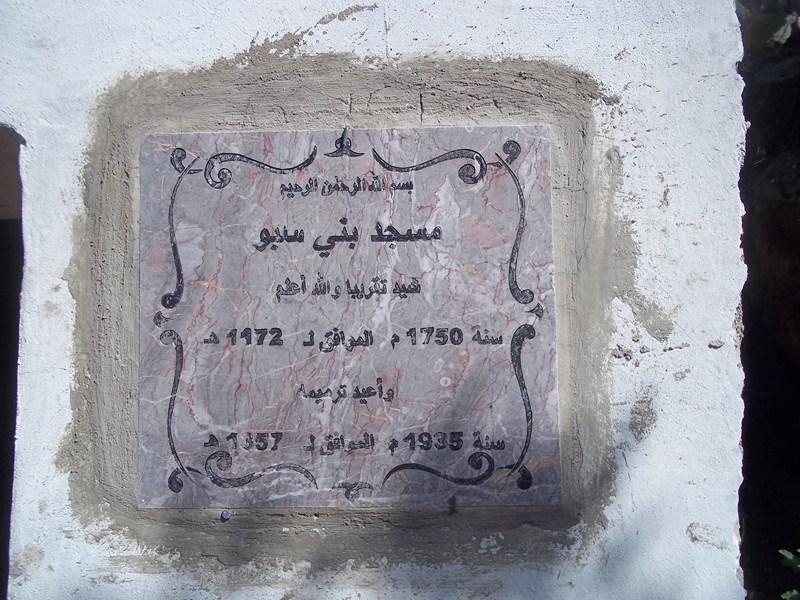 بسم الله الرحمن الرحيم
مسجد بني سلبو
شيد تقريبا والله أعلم
سنة 1750 م الموافق لـ 1172 هـ
وأعيد ترميمه
سنة 1935 م الموافق لـ 1357 هـ